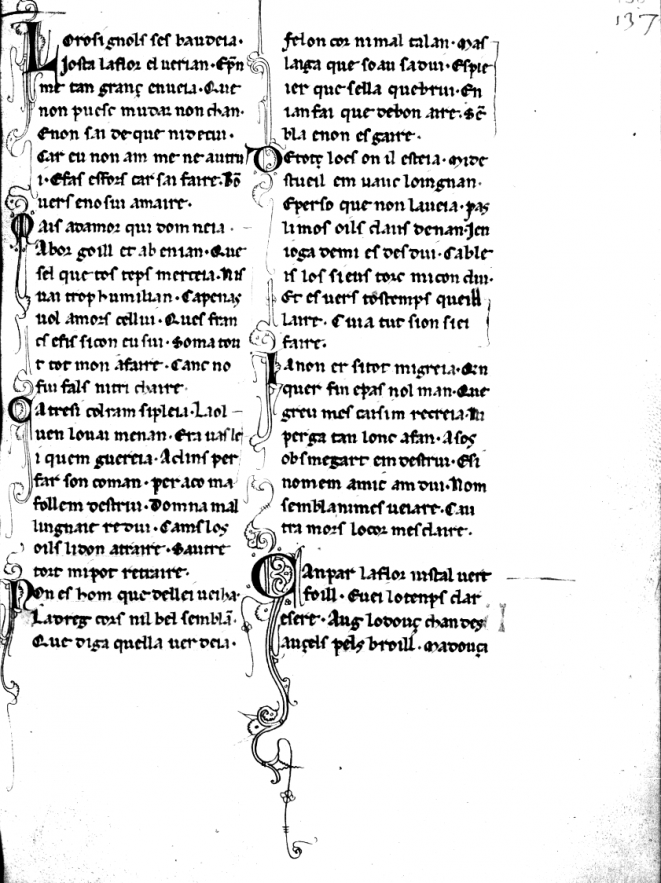 137
Lo rosignols ses baudeia ·
Josta la flor el verian · Ep̄n
me tan granç enueia · Que
non puesc mudar non chan ·
E non sai de que ni de cui ·
Car eu non am me ne autru
i · E fas esfors car sai faire · Bō
uers e no sui amaire ·
Mais adamor qui dom neia ·
Ab orgoill et ab enian · Que
sel que tos teps merceia · Nis
uai trop humilian · Ca penas
uol amors cellui · Ques fran
cs e fis sicon eu sui · So ma tou
t tot mon afaire · Canc no
fui fals ni tri chaire ·
Catresi col ram si pleia · Laol
uen lo uai menan · Era uas le
i quem guereia · Aclins per
far son coman · per aco ma
follem destrui · Domna mal
lingnatie redui · Cams los
oils li don atraire · Sautre
tort mi pot retraire ·
Non es hom que dellei ueiha ·
La dreg cors nil bel semblā ·
Que diga quella uer deia ·
felon cor ni mal talan · Mas
laiga que soau sadui · Es pie
ier que sella que brui · En
ian fai que de bon aire · Sē
bla e non es gaire ·
De totç locs on il esteia · Mi de
stueil em uauc loingnan ·
E per so que non la ueia · pas
li mos oils claus denan · Jen
ioga de mi es des dui · Cable
is los sieus torc mi con dui ·
Et es uers tostemps queill
laire · Cui a tut sion siei
faire ·
Ja non er sitot mi greia · Qn
quer fin e pas nol man · Que
greu mes cai sim recreia · Ni
perga tan lonc afan · A sos
obs me gart em destrui · E si
no mem amic am dui · Nom
semblanimes ueiaire · Cau
tra mors lo cor mesclaire ·
Can par la flor iustal uert
foill · E uei lo temps clar
e sert · Aug lo douç chan des
auçels pels broill · Ma douçi